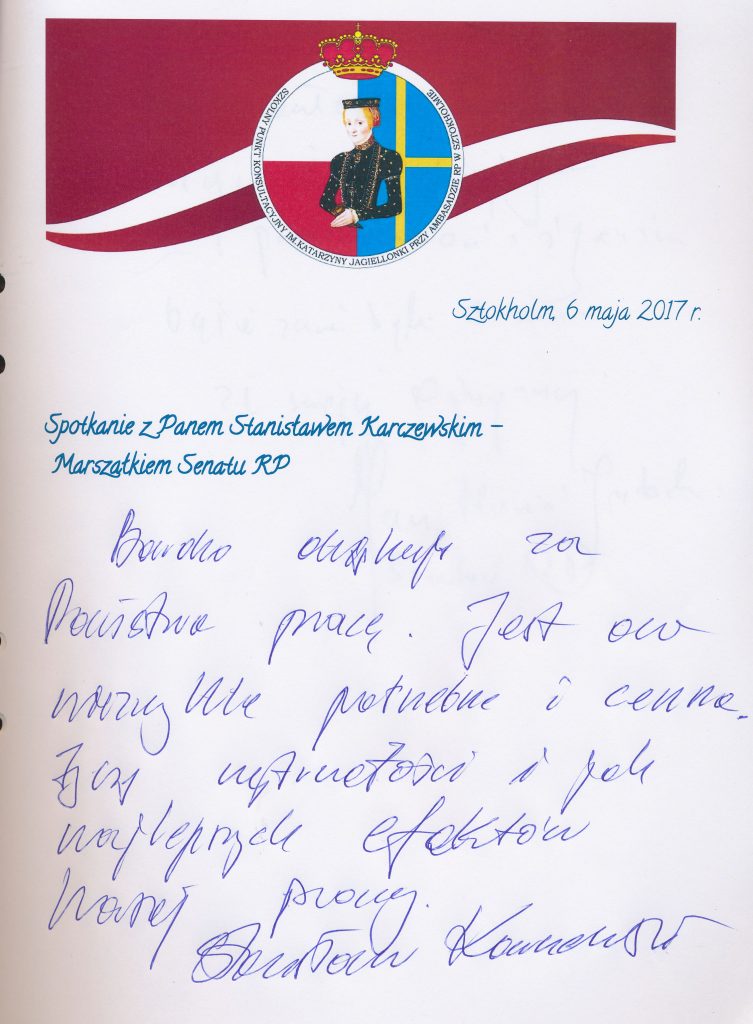 SZKOLNY PUNKT KONSULTACYJNY IM.KATARZYNY JAGIELLONKI PRZY AMBASADZIE RP W SZTOKHOLMIE
Sztokholm, 6 maja 2017 r.
Spotkanie z Panem Stanisławem Karczewskim –
Marszałkiem Senatu RP
Bardzo dziękuję za
Państwa pracę. Jest ona
niezwykle potrzebna i cenna.
Życzę wytrwałości i jak
najlepszych efektów
Waszej pracy.
Stanisław Karczewski